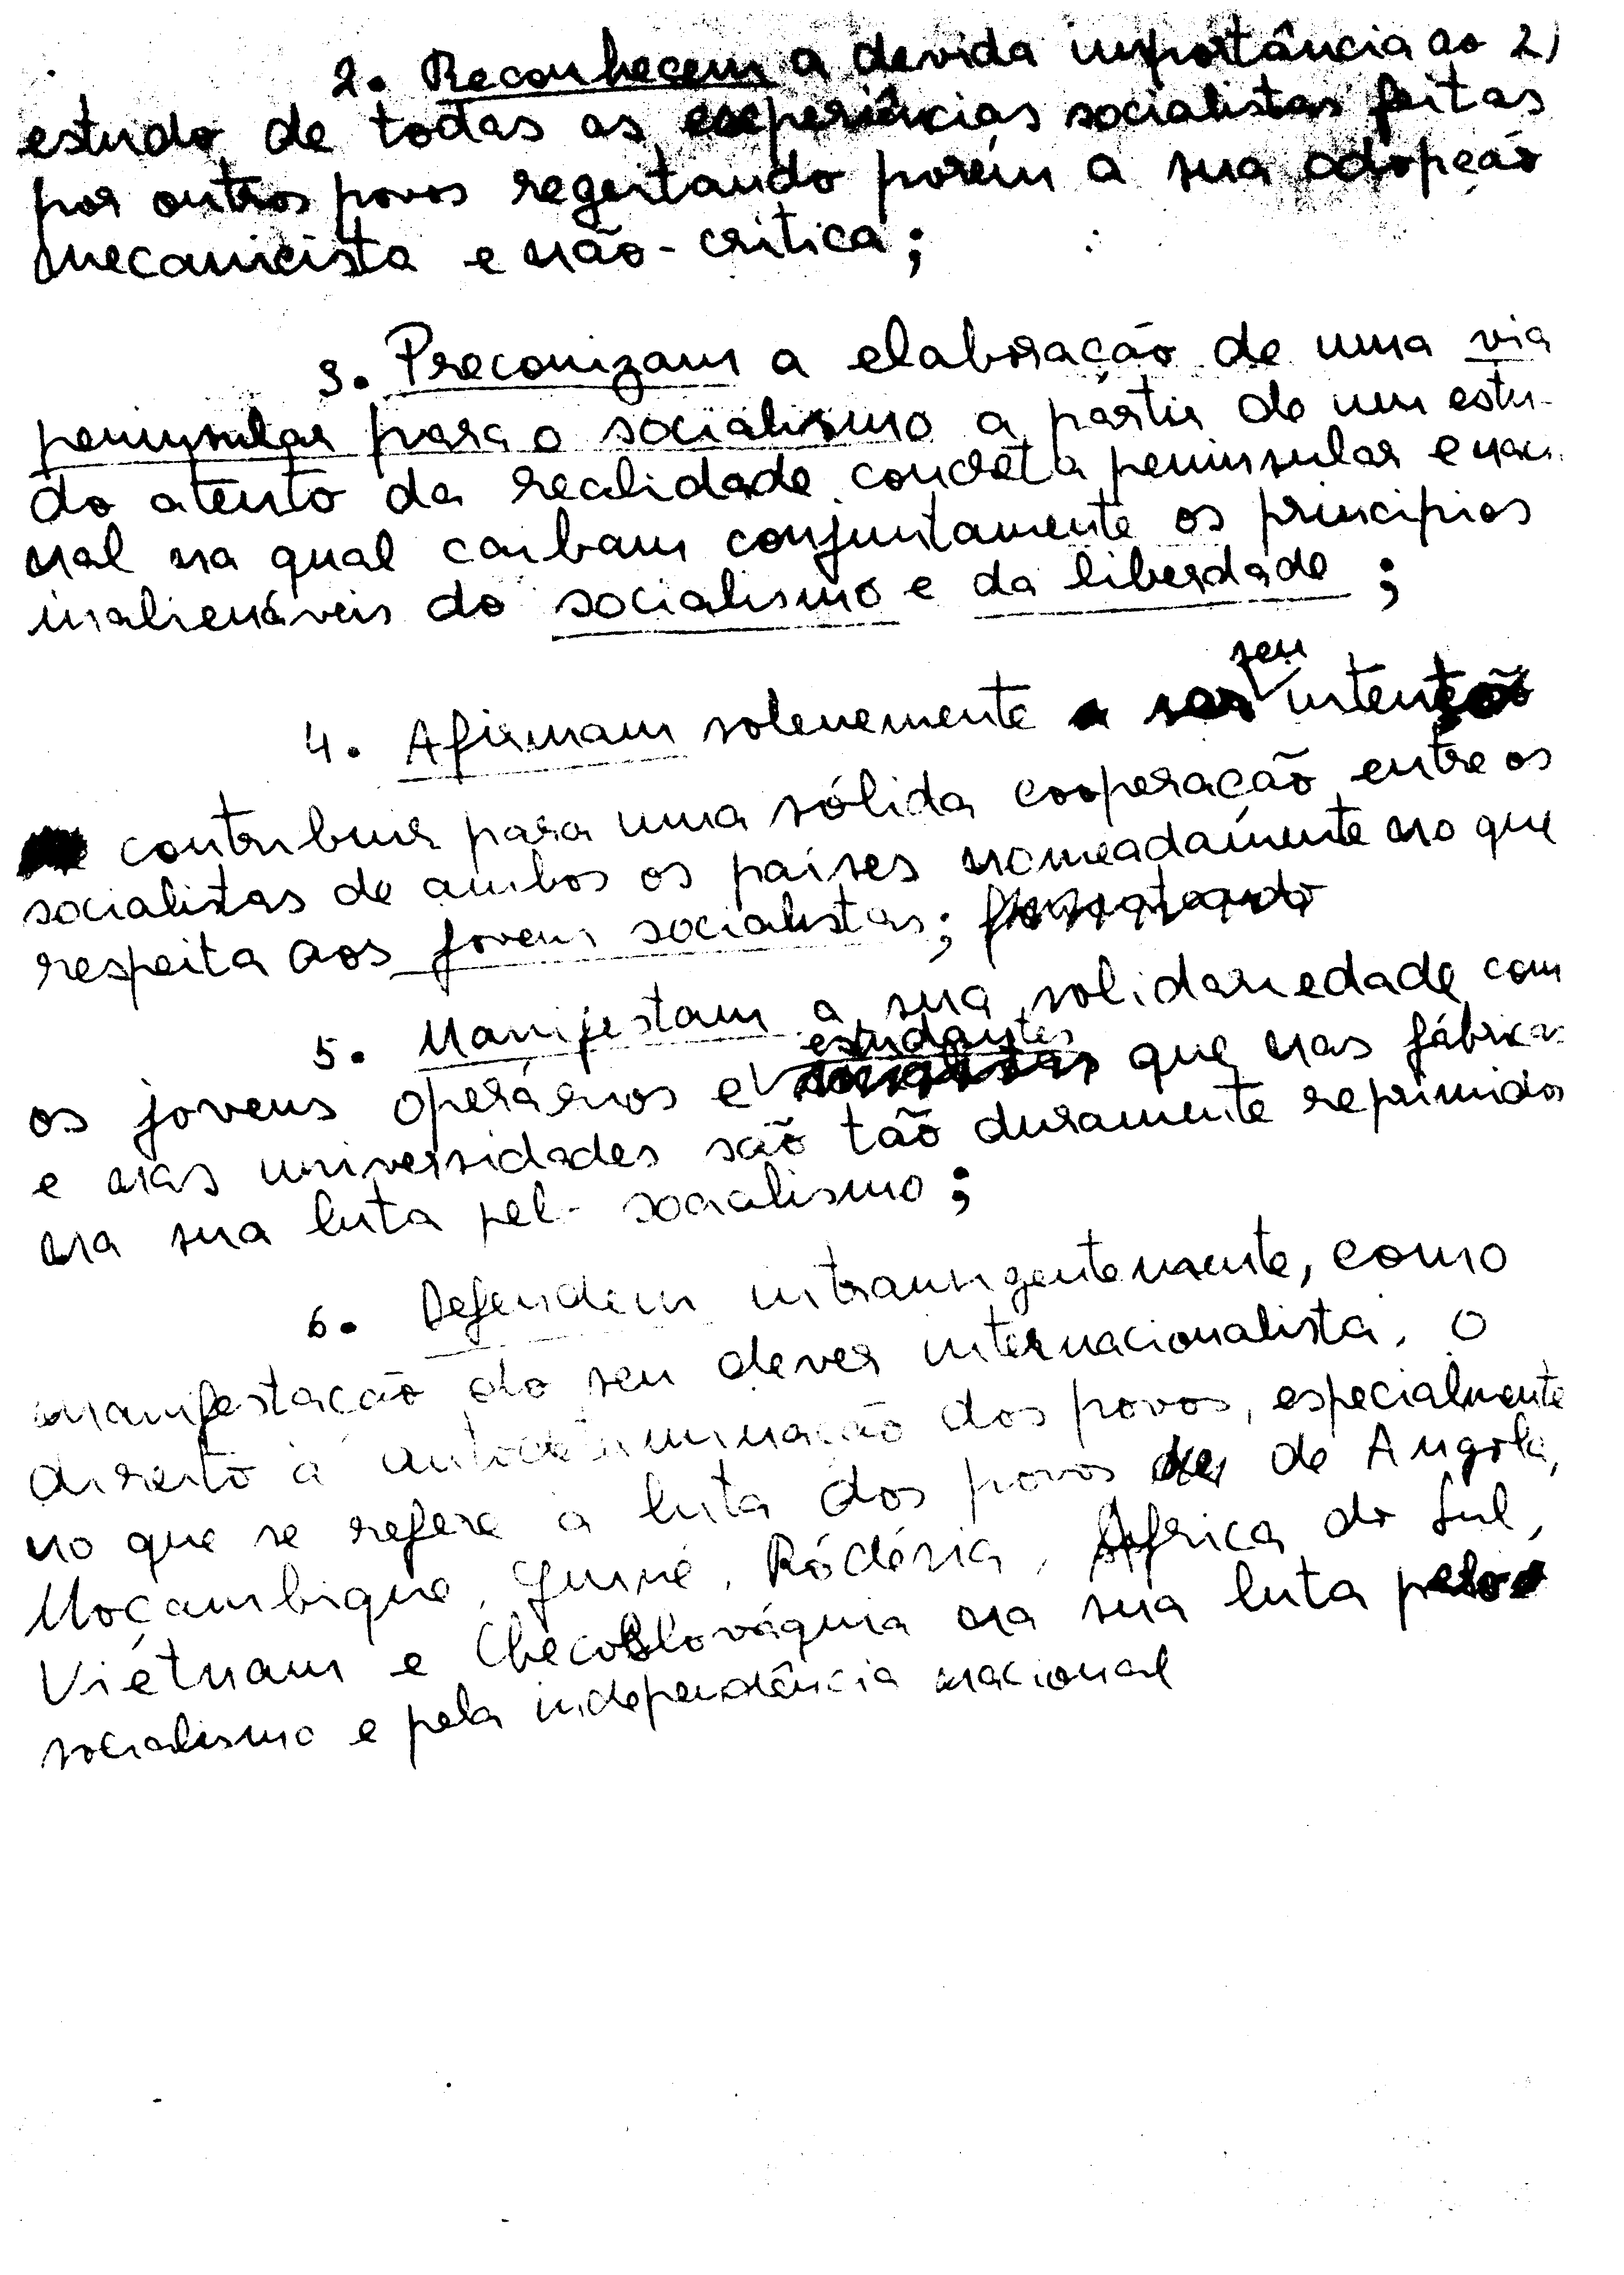 2. Reconhecem a devida importância ao 2)
estudo de todas as experiências socialistas feitas
por outros povos regeitando porém a sua adopção
mecanicista e não-critica;
3. Preconizam a elaboração de uma via
peninsular para o socialismo a partir de um estu-
do atento da realidade concreta peninsular e naci
nal na qual caibam conjuntamente os principios
inalienáveis do socialismo e da liberdade;
seu
4. Afirmam solenemente intenção
contribuir para uma sólida cooperação entre os
socialistas de ambos os países nomeadamente no que
respeita aos jovens socialistas;
5. Manifestam a sua solidariedade com
estudantes
os jovens operários e que nas fábricas
e nas universidades são tão duramente reprimidos
na sua luta pel- socialismo;
6. Defendem intransigentemente, como
manifestação do seu dever internacionalista, o
direito à autodeterminação dos povos, especialmente
no que se refere à luta dos povos de Angola,
Moçambique, Guiné, Rodésia, Africa do Sul,
Viétnam e Checoslováquia na sua luta pelo
socialismo e pela independência nacional